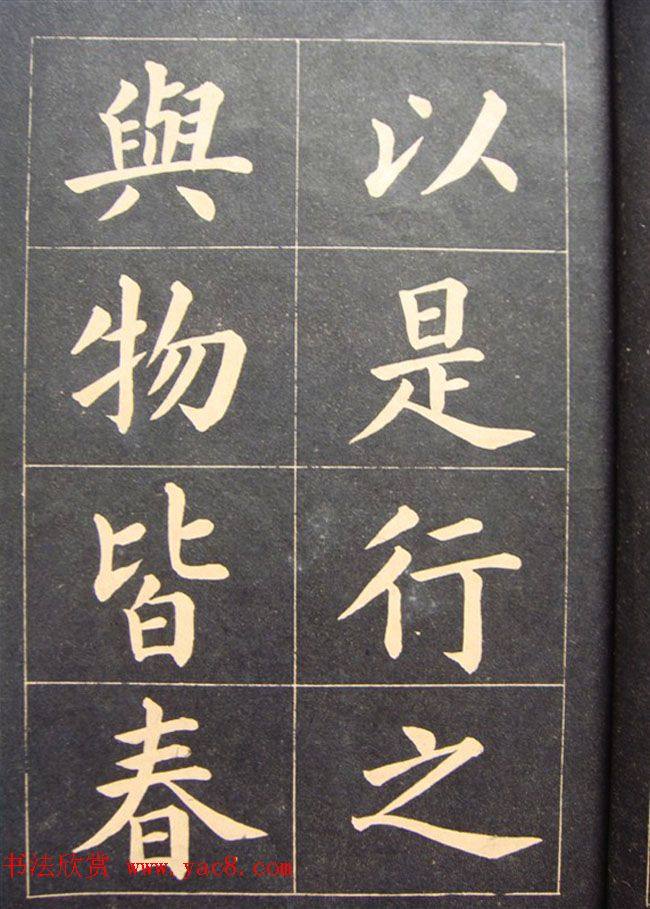 以是行之
與物皆春
书法欣赏 www.yac8.com